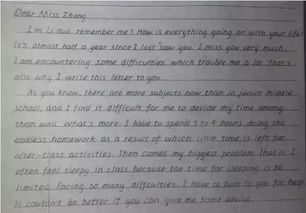 Dear Miss Zhang
I'm Li Hua, remember me? How is everything going on with your life?
It's almost half a year since I last saw you. I miss you very much.
I am encountering some difficulties, which trouble me a lot. That's
also why I write this letter to you.
As you know, there are more subjects now than in junior middle
school, and I find it difficult for me to devide my time among
them well. What's more, I have to spend 3 to 4 hours doing the
endless homework, as a result of which little time is left for
after-class activities. Then comes my biggest problem. That is I
often feel sleepy in class because the time for sleeping is so
limited. Facing so many difficulties, I have to turn to you for help
It couldn't be better if you can give me some advice.